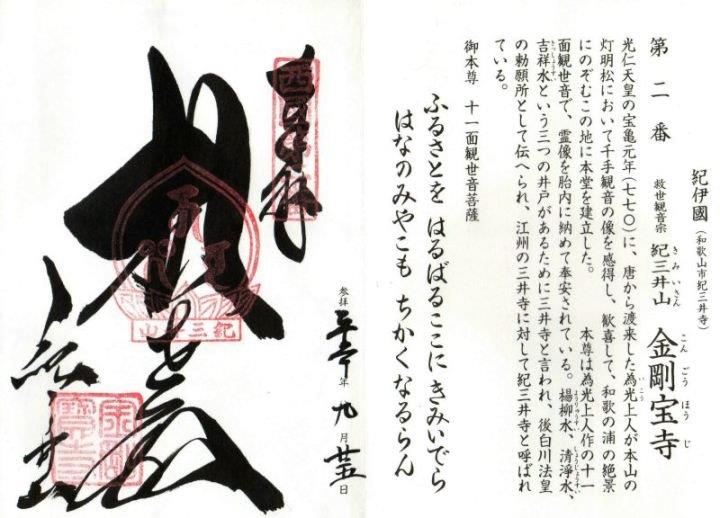 紀伊國(和歌山市紀三井寺)
第二番 救世観音宗 紀三井山 金剛宝寺
きみいさん こんごうほうじ
光仁天皇の宝亀元年(七七〇)に、唐から渡来した為光上人が本山の
いこう
灯明松において千手観音の像を感得し、歓喜して、和歌の浦の絶景
にのぞむこの地に本堂を建立した。 本尊は為光上人作の十一
面観世音で、霊像を胎内に納めて奉安されている。楊柳水、清浄水、
ようりゅうすい しょうじょうすい
吉祥水という三つの井戸があるために三井寺と言われ、後白川法皇
きっしょうすい
の勅願所として伝へられ、江州の三井寺に対して紀三井寺と呼ばれ
ている。
御本尊 十一面観世音菩薩
ふるさとを はるばるここに きみいでら
はなのみやこも ちかくなるらん
参拝 年 九月廿五日
紀三井山